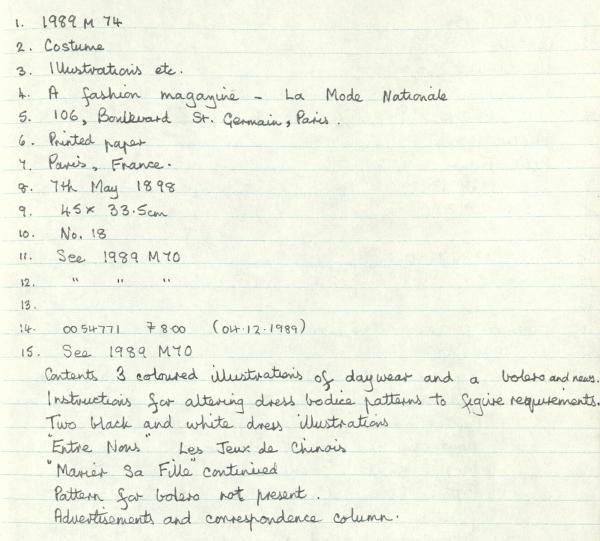 1. 1989 M 74
2. Costume
3. Illustrations etc.
4. A fashion magazine - La Mode Nationale
5. 106, Boulevard St. Germain, Paris.
6. Printed paper
7. Paris, France.
8. 7th May 1898
9. 45 x 33.5cm
10. No. 18
11. See 1989 M70
12. " " "
13.
14. 0054771 £8.00 (04.12.1989)
15. See 1989 M70
Contents 3 coloured illustrations of daywear and a bolero and news.
Instructions for altering dress bodice patterns to figure requirements.
Two black and white dress illustrations
"Entre Nous" Les Jeux de Chinois
"Marier Sa Fille" continued
Pattern for bolero not present.
Advertisements and correspondence column.